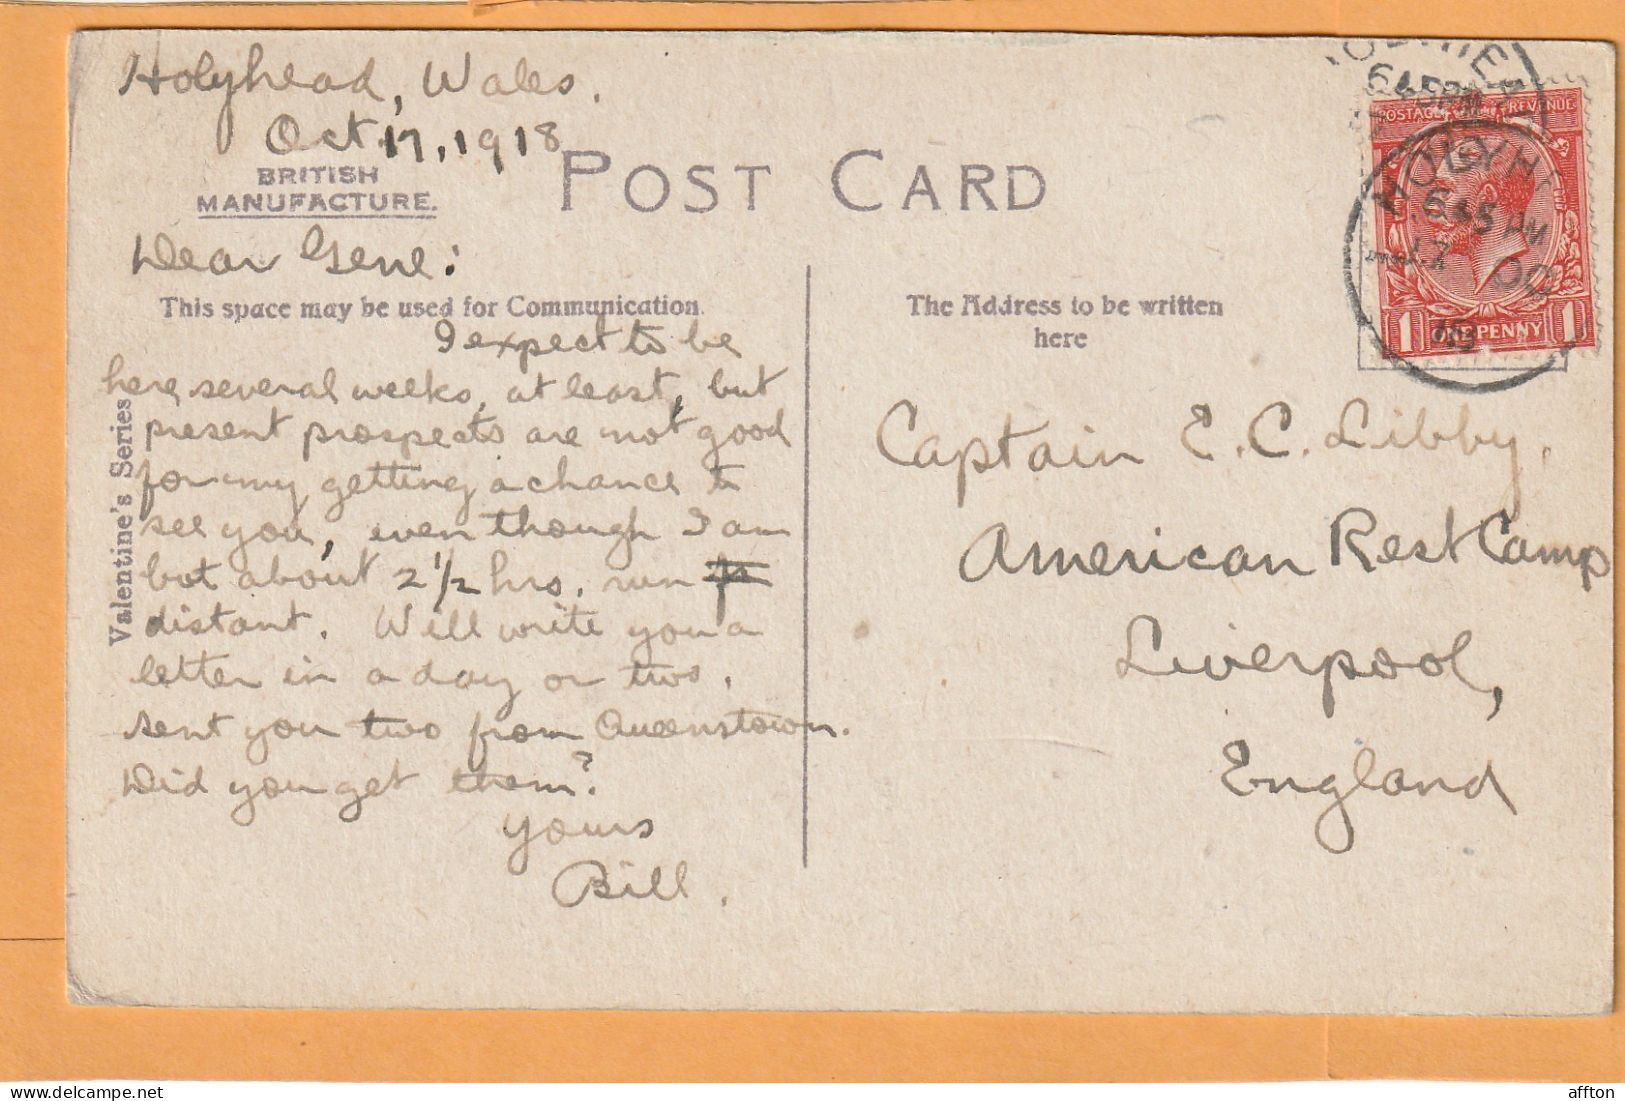 Holyhead, Wales.
Oct. 17, 1918
BRITISH
MANUFACTURE.
POST CARD
Dear Gene:
This space may be used for Communication
I expect to be
here several weeks, at least, but
present prospects are not good
for my getting a chance to
see you, even though I am
but about 2 1/2 hrs. run
distant. Will write you a
letter in a day or two.
Sent you two from Queenstown.
Did you get them?
Yours
Bill.
Valentine's Series
The Address to be written
here
Captain E. C. Libby,
American Rest Camp
Liverpool,
England
POSTAGE REVENUE
HOLYH
6 45 PM
17 OC
18
1 ONE PENNY 1
6 45 PM
affton